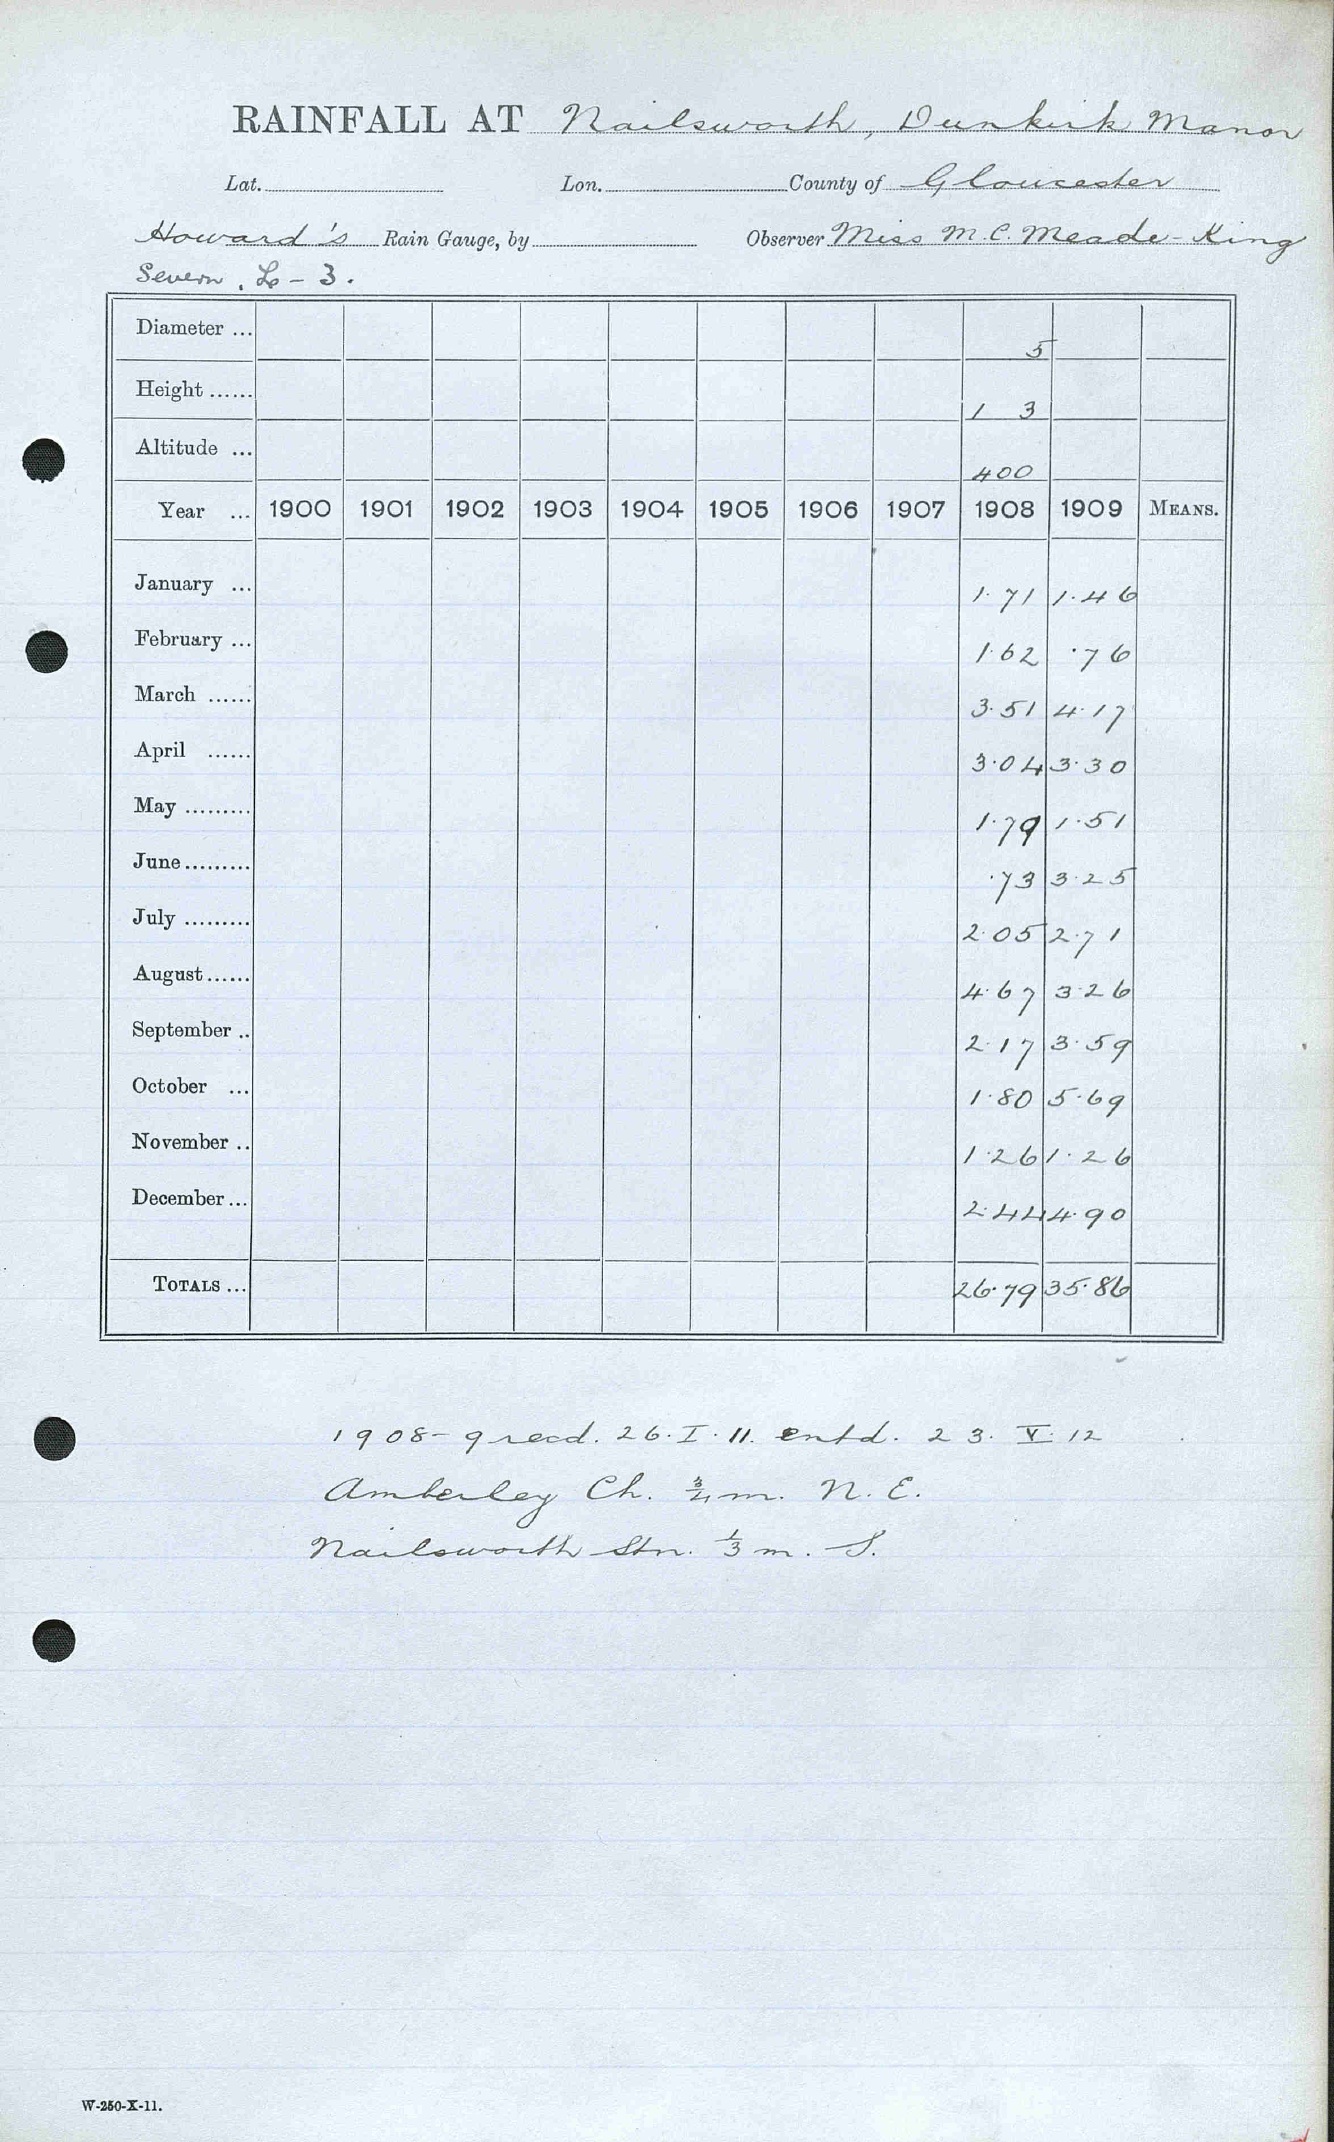 RAINFALL AT Nailsworth, Dunkirk Manor
Lat. Lon. County of Gloucester
Howard's Rain Gauge, by Observer Miss M. C. Meade-King
Severn. L - 3.
Diameter ... 5
Height ...... 1 3
Altitude ... 400
Year ... 1900 1901 1902 1903 1904 1905 1906 1907 1908 1909 MEANS.
January ... 1.71 1.46
February ... 1.62 .76
March ...... 3.51 4.17
April ...... 3.04 3.30
May ......... 1.79 1.51
June ......... .73 3.25
July ......... 2.05 2.71
August ...... 4.67 3.26
September .. 2.17 3.59
October ... 1.80 5.69
November .. 1.26 1.26
December ... 2.44 4.90
TOTALS ... 26.79 35.86
1908-9 recd. 26.I.11. entd. 23.V.12
Amberley Ch. ¾ m. N. E.
Nailsworth Stn. ⅓ m. S.
W-250-X-11.